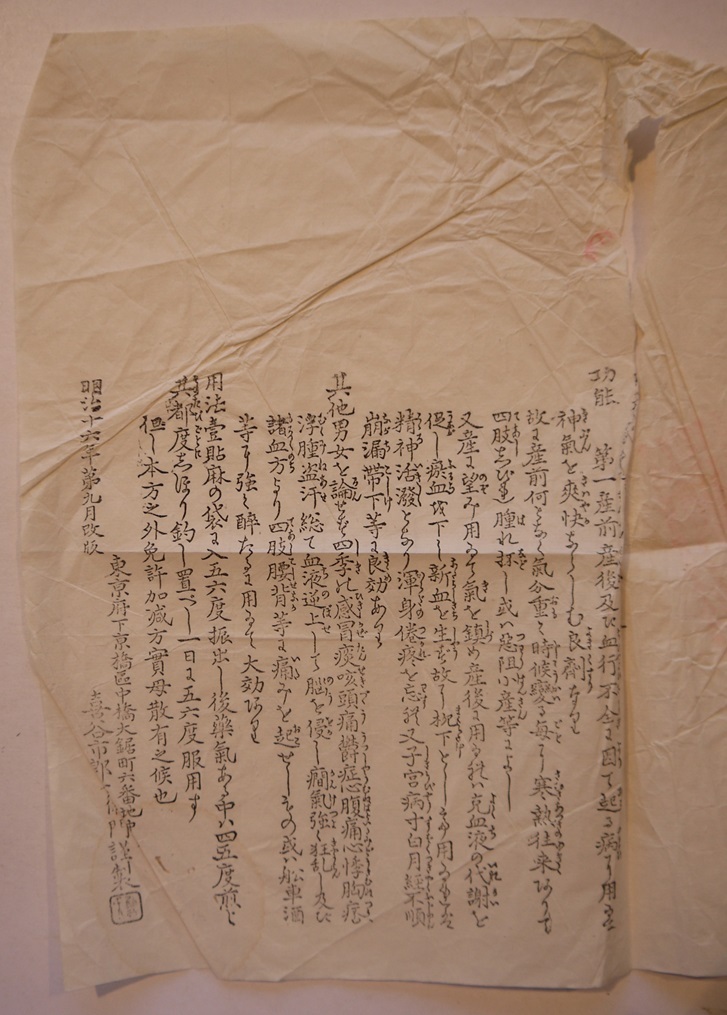 功能 第一産前産後及ひ血行不全に因て起る病に用ゐ
神氣を爽快ならしむ良劑なり
故に産前何となく氣分重く時候變る毎に寒熱往来ありて
四肢しびれ腫れ抔し或ハ惡阻小産等によし
又産に望み用ゐて氣を鎮め産後に用ゐれハ充血液の代謝を
促し瘀血を下し新血を生ず故に
精神活潑となり渾身倦疼を忘れ又子宮病寸白月經不順
崩漏帶下等に良効あり
其他男女を論せず四季の感冒痰咳頭痛鬱症心腹痛心悸胸痞
浮腫盗汗総て血液逆上して脳を侵し癇氣強く狂乱し及ひ
諸血方より四肢腰背等に痛みを起せしもの或ハ船車酒
等に強く醉たるに用ゐて大効あり
用法壹貼麻の袋に入五六度振出し後藥氣ある中ハ四五度煎じ
其都度しほり釣し置べし一日に五六度服用す
但し本方之外免許加減方實母散有之候也
明治十六年第九月改版
東京府下京橋區中橋大鋸町六番地
喜谷市郎右衛門謹製